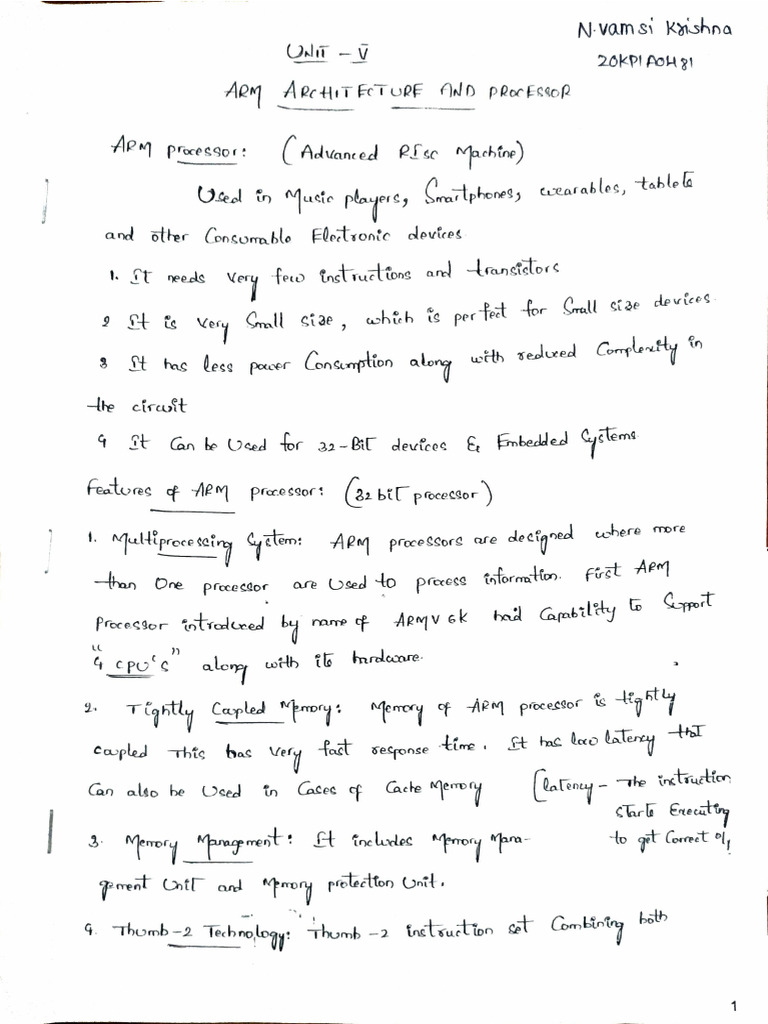 N.vamsi Krishna
20KP1A0481
UNIT - V
ARM ARCHITECTURE AND PROCESSOR
ARM processor: (Advanced RISC Machine)
Used in Music players, Smartphones, wearables, tablets
and other Consumable Electronic devices
1. It needs very few instructions and transistors
2 It is very Small size, which is perfect for Small size devices.
3 It has less power Consumption along with reduced Complexity in
the circuit
4 It Can be Used for 32-Bit devices & Embedded Systems
Features of ARM processor: (32 bit processor)
1. Multiprocessing System: ARM processors are designed where more
than One processor are Used to process information. First ARM
Processor introduced by name of ARMV6K had Capability to Support
"4 CPU's" along with its hardware.
2. Tightly Coupled Memory: Memory of ARM processor is tightly
coupled This has very fast response time. It has low latency that
Can also be Used in Cases of Cache Memory (latency - The instruction
starts Executing
to get Correct o/p
3. Memory Management: It includes Memory Mana-
gement Unit and Memory protection Unit.
4. Thumb-2 Technology: Thumb-2 instruction set Combining both
1